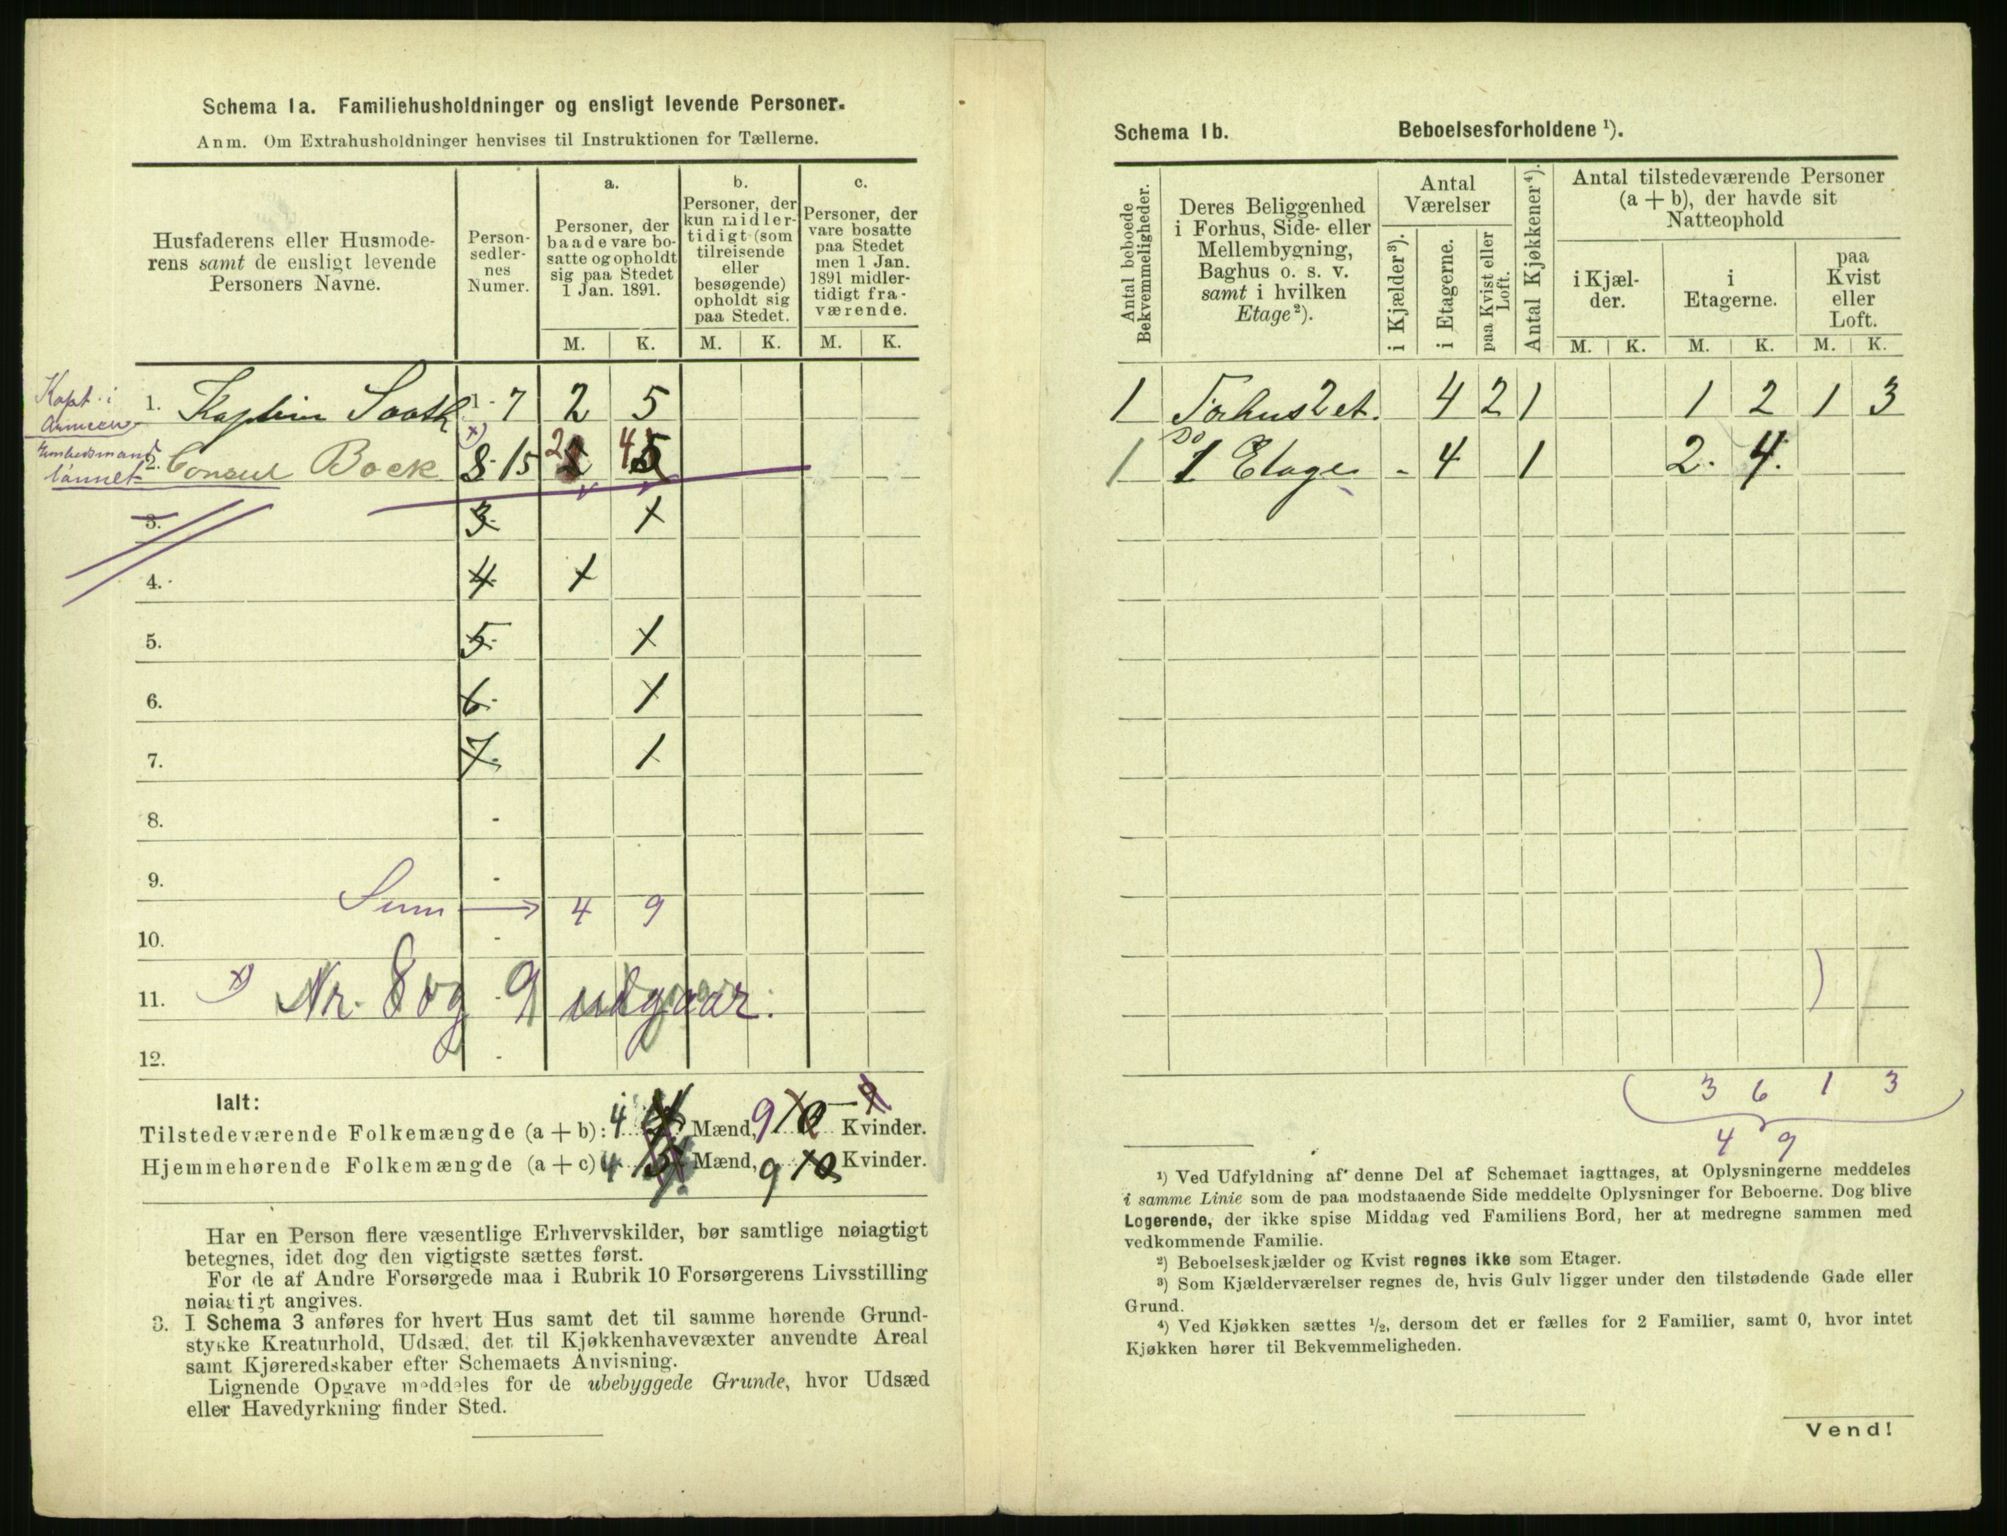 Schema 1a. Familiehusholdninger og ensligt levende Personer.
Anm. Om Extrahusholdninger henvises til Instruktionen for Tællerne.
Husfaderens eller Husmode-
rens samt de ensligt levende
Personers Navne.
Person-
sedler-
nes
Numer.
a.
Personer, der
baade vare bo-
satte og opholdt
sig paa Stedet
1 Jan. 1891.
b.
Personer, der
kun midler-
tidigt (som
tilreisende
eller
besøgende)
opholdt sig
paa Stedet.
c.
Personer, der
vare bosatte
paa Stedet
men 1 Jan.
1891 midler-
tidigt fra-
værende.
M. K. M. K. M. K.
Kapt. i
Armeen
1. Kaptein 1-7 2 5
Embedsmand
lønnet
2. Consul Bock 8-15 2 4 5
3. 3 x
4. 4 x
5. 5 x
6. 6 x
7. 7 1
8. -
9. -
Sum → 4 9
10. -
x) Nr. 8 og 9 udgaar.
11.
12. -
Ialt:
Tilstedeværende Folkemængde (a + b): 4 Mænd, 9 Kvinder.
Hjemmehørende Folkemængde (a + c) 4 Mænd, 9 Kvinder.
Har en Person flere væsentlige Erhvervskilder, bør samtlige nøiagtigt
betegnes, idet dog den vigtigste sættes først.
For de af Andre Forsørgede maa i Rubrik 10 Forsørgerens Livsstilling
nøiagtigt angives.
3. I Schema 3 anføres for hvert Hus samt det til samme hørende Grund-
stykke Kreaturhold, Udsæd, det til Kjøkkenhavevæxter anvendte Areal
samt Kjøreredskaber efter Schemaets Anvisning.
Lignende Opgave meddeles for de ubebyggede Grunde, hvor Udsæd
eller Havedyrkning finder Sted.
Schema 1b. Beboelsesforholdene ¹).
Antal beboede
Bekvemmeligheder.
Deres Beliggenhed
i Forhus, Side- eller
Mellembygning,
Baghus o. s. v.
samt i hvilken
Etage²).
Antal
Værelser
i Kjælder³).
i Etagerne.
paa Kvist eller
Loft.
Antal Kjøkkener⁴).
Antal tilstedeværende Personer
(a + b), der havde sit
Natteophold
i Kjæl-
der.
i
Etagerne.
paa
Kvist
eller
Loft.
M. K. M. K. M. K.
1 Forhus 2 et. - 4 2 1 1 2 1 3
1 Do 1 Etage - 4 1 2. 4.
3 6 1 3
4 9
¹) Ved Udfyldning af denne Del af Schemaet iagttages, at Oplysningerne meddeles
i samme Linie som de paa modstaaende Side meddelte Oplysninger for Beboerne. Dog blive
Logerende, der ikke spise Middag ved Familiens Bord, her at medregne sammen med
vedkommende Familie.
²) Beboelseskjælder og Kvist regnes ikke som Etager.
³) Som Kjælderværelser regnes de, hvis Gulv ligger under den tilstødende Gade eller
Grund.
⁴) Ved Kjøkken sættes ¹/₂, dersom det er fælles for 2 Familier, samt 0, hvor intet
Kjøkken hører til Bekvemmeligheden.
Vend!